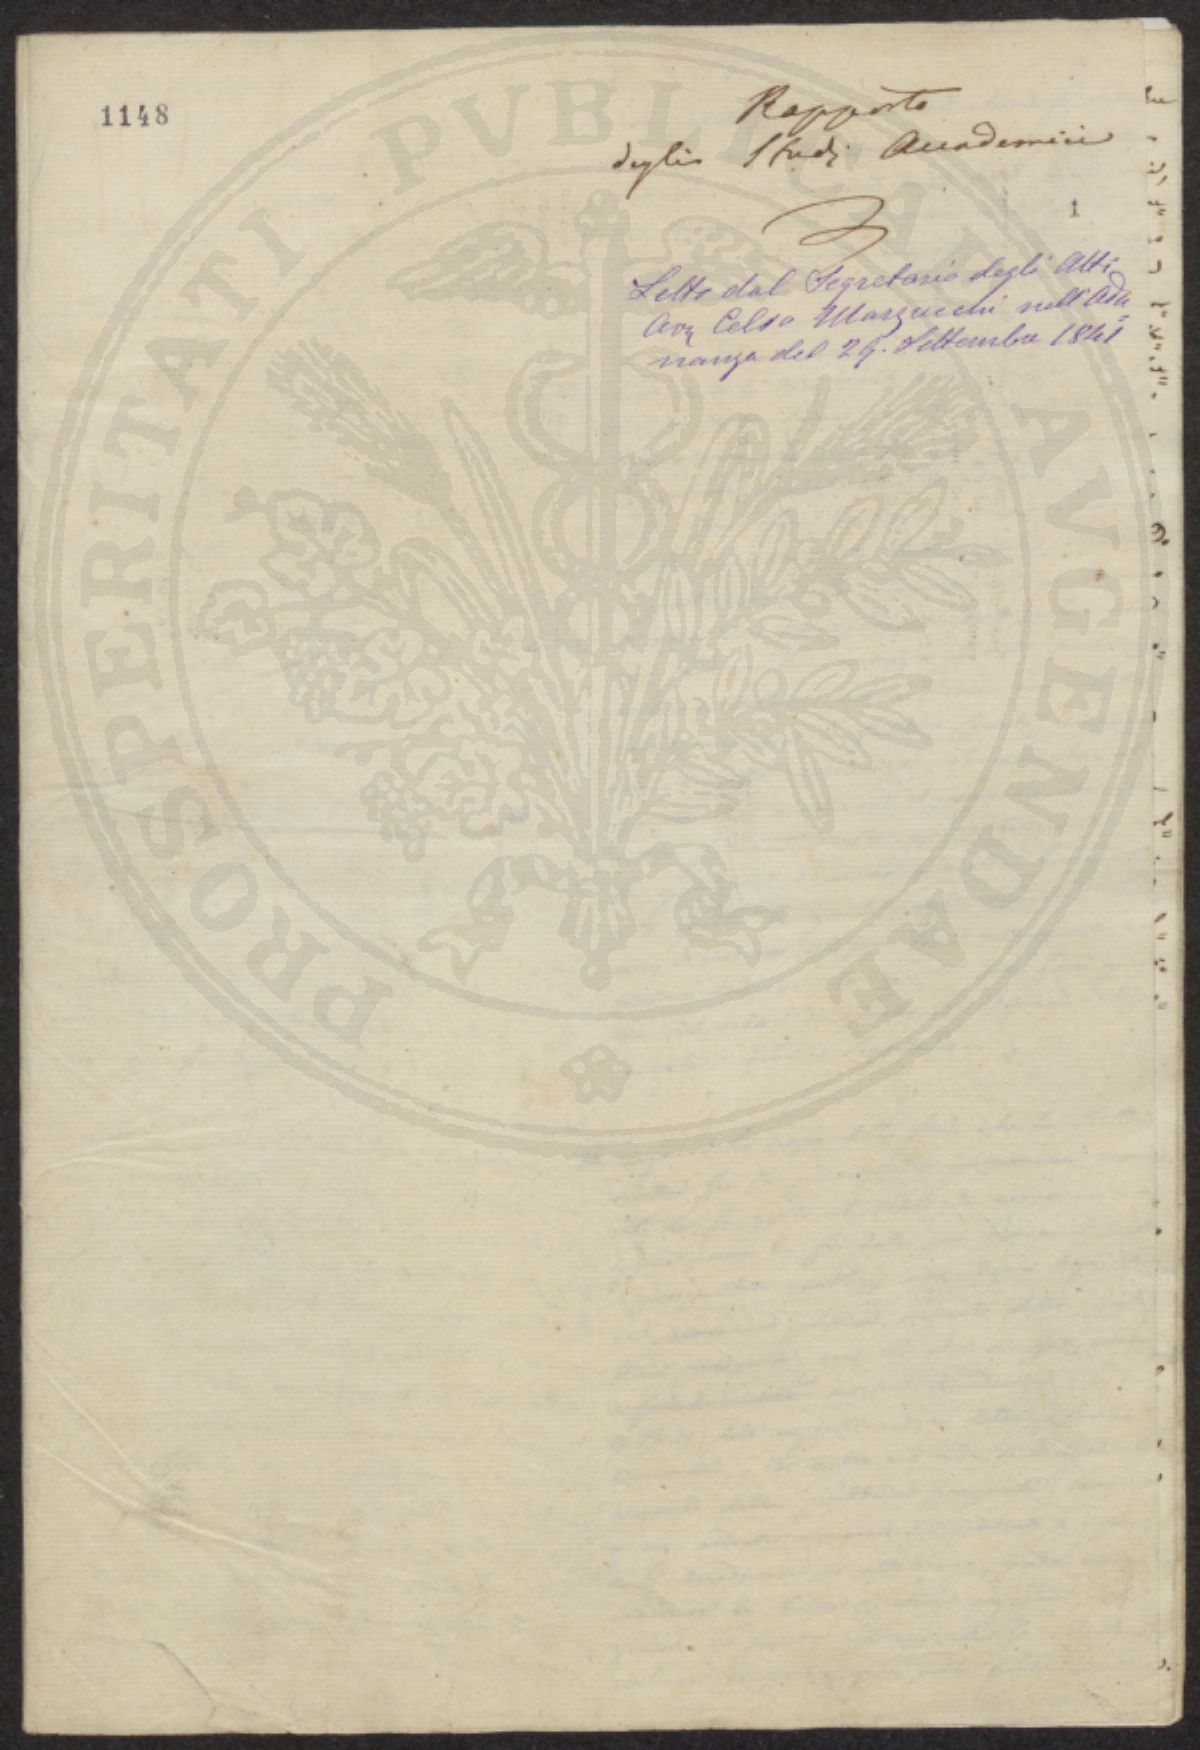 1148
Rapporto
degli Studj Accademici
1
Letto dal Segretario degli Atti
Avv. Celso Marzucchi nell'Adu=
nanza del 29. Settembre 1841
PROSPERITATI PVBLICAE AVGENDAE